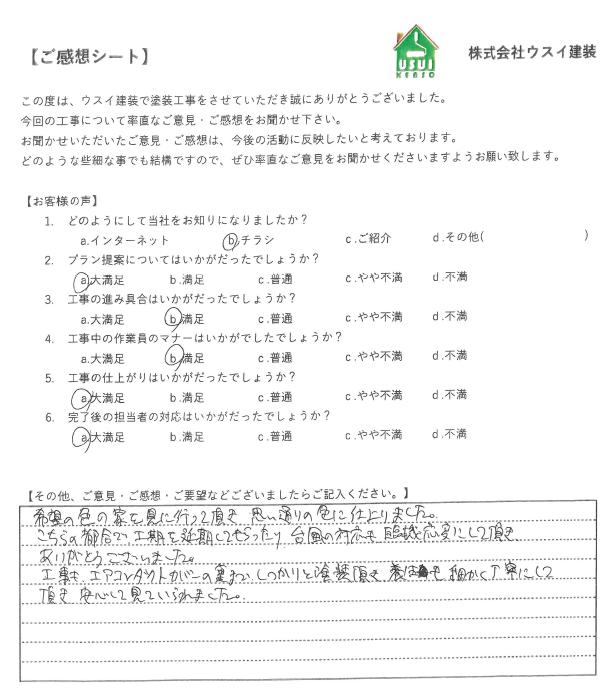 【ご感想シート】
USUI
KENSO
株式会社ウスイ建装
この度は、ウスイ建装で塗装工事をさせていただき誠にありがとうございました。
今回の工事について率直なご意見・ご感想をお聞かせ下さい。
お聞かせいただいたご意見・ご感想は、今後の活動に反映したいと考えております。
どのような些細な事でも結構ですので、ぜひ率直なご意見をお聞かせくださいますようお願い致します。
【お客様の声】
1. どのようにして当社をお知りになりましたか？
a.インターネット b.チラシ c.ご紹介 d.その他( )
2. プラン提案についてはいかがだったでしょうか？
a.大満足 b.満足 c.普通 c.やや不満 d.不満
3. 工事の進み具合はいかがだったでしょうか？
a.大満足 b.満足 c.普通 c.やや不満 d.不満
4. 工事中の作業員のマナーはいかがでしたでしょうか？
a.大満足 b.満足 c.普通 c.やや不満 d.不満
5. 工事の仕上がりはいかがだったでしょうか？
a.大満足 b.満足 c.普通 c.やや不満 d.不満
6. 完了後の担当者の対応はいかがだったでしょうか？
a.大満足 b.満足 c.普通 c.やや不満 d.不満
【その他、ご意見・ご感想・ご要望などございましたらご記入ください。】
希望の色の家を見に行って頂き 思い通りの色に仕上りました。
こちらの都合で、工期を延期してもらったり 台風の対応も 臨機応変にして頂き
ありがとうございました。
工事も、エアコンダクトカバーの裏まで しっかりと塗装頂き も 細かく丁寧にして
頂き 安心して見ていられました。